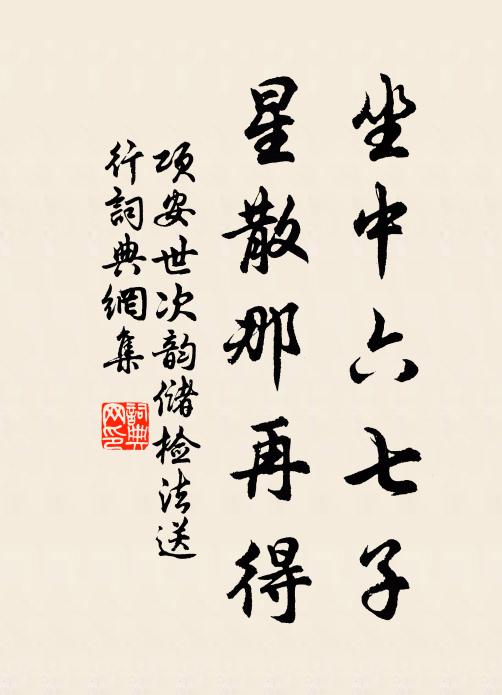 坐中六七子
星散那再得
项安世次韵储检法送
行詞典網集
詞典
网印